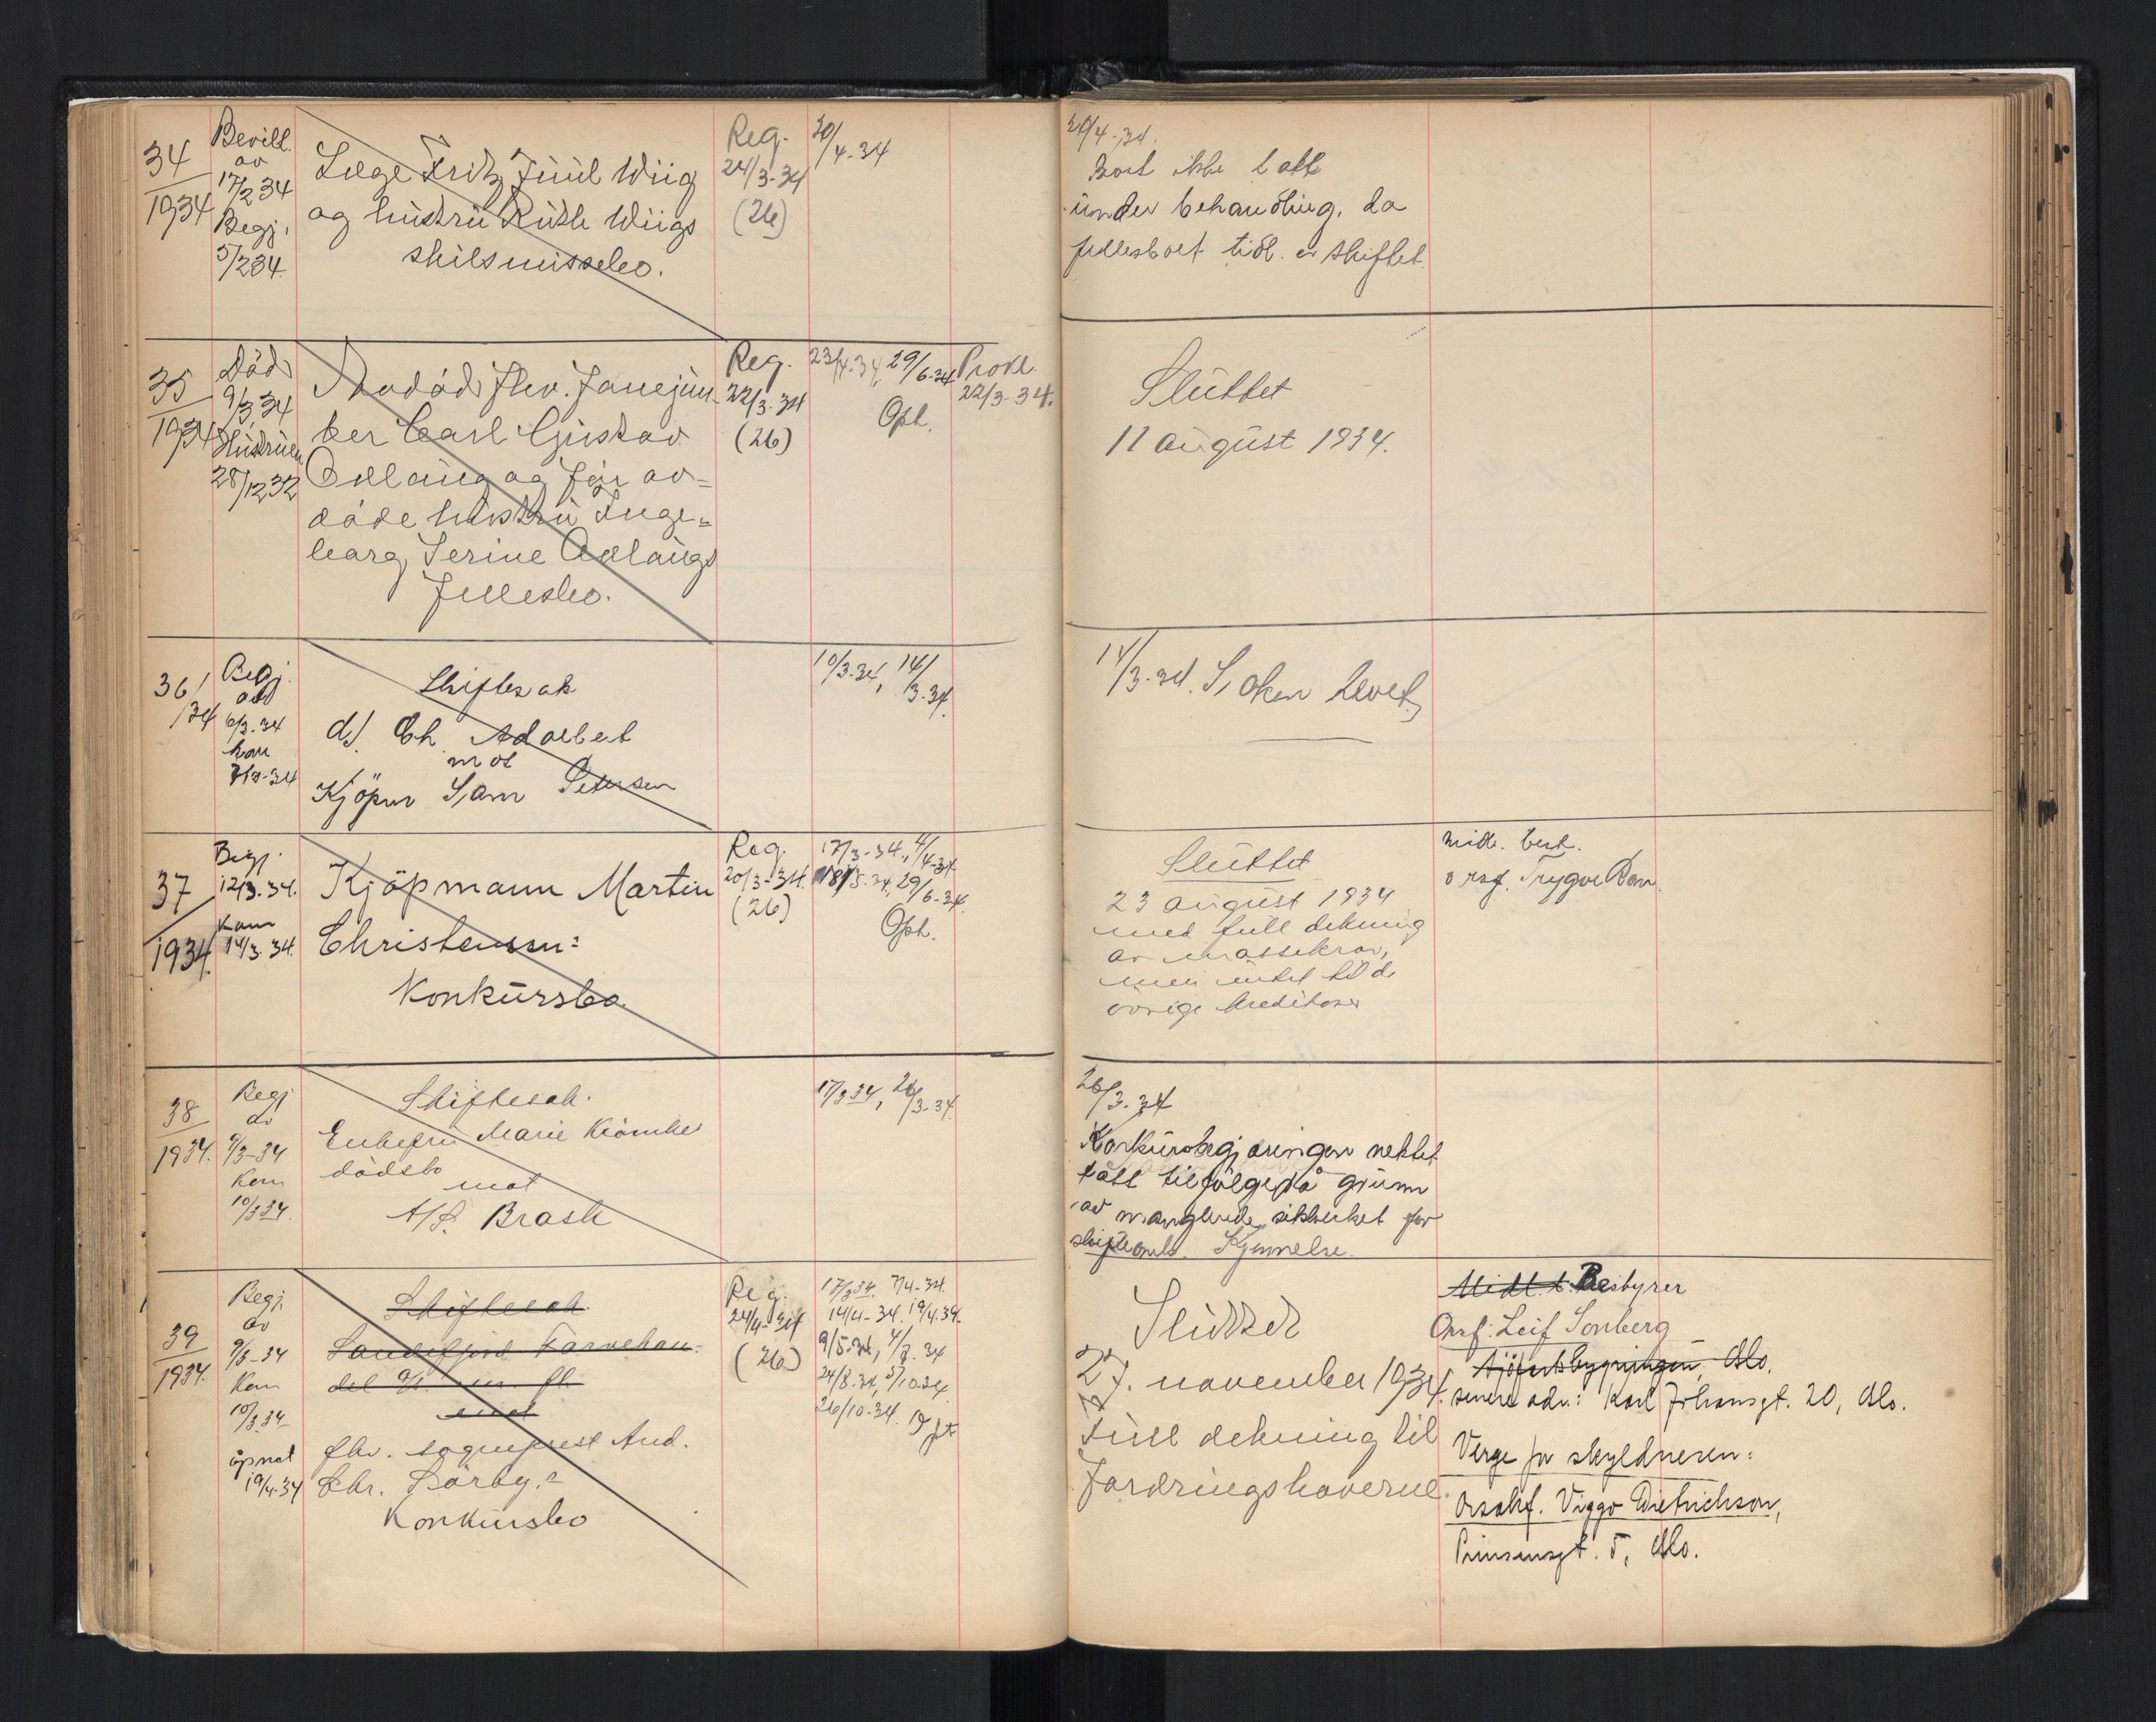 34
1934
Bevill.
av
17/2 34
Begj.
5/2 34.
Læge Fritz Juul Wiig
og hustru Ruth Wiigs
skilsmissebo.
Reg.
24/3-34
(26)
20/4-34
20/4-34.
Boet ikke tatt
under behandling, da
fellesboet tidl. er skiftet.
35
1934
Död
9/3 34
Hustruen
28/12 32
Avdöde fhv.
ber Carl Gustav
og før av=
døde hustru Inge=
borg Serine
fellesbo.
Reg.
22/3-34
(26)
23/4-34, 29/6-34
Oph.
Prokl.
22/3-34.
Sluttet
11 august 1934.
36/
/34
Begj.
av
6/3-34
kom
7/3-34
Skiftesak
d/ Ch.
mot
Kjöpm Sam Petersen
10/3-34, 14/3-34.
14/3-34. Saken hevet.
37
1934.
Begj.
12/3.34.
kom
14/3.34.
Kjöpmann Martin
Christensen:
Konkursbo.
Reg.
20/3-34.
(26)
17/3-34., 4/4-34
18/5-34, 29/6-34.
Oph.
Sluttet
23 august 1934
med full dekning
av massekrav,
men intet til de
övrige kreditorer
midl. best.
o rsf. Trygve
38
1934.
Begj
av
9/3-34
Kom
10/3 34.
Skiftesak.
Enkefru Marie
dödsbo
mot
A/S. Brask
17/3 34, 26/3-34.
26/3-34
Konkursbegjæringen nektet
tatt tilfölge på grunn
av manglende sikkerhet for
skifteomk. Kjennelse.
39
1934.
Begj.
av
9/3-34
Kom
10/3 34
åpnet
19/4-34
Skiftesak.
Sandefjord Farvehan=
del A/S. m. fl.
mot
fhv. sogneprest And.
Chr. Sörby:
Konkursbo
Reg.
24/4-34
(26)
17/3 34. 7/4-34.
14/4-34. 19/4.34.
9/5.34, 4/7.34
24/8.34, 5/10.34
26/10-34.
Sluttet
27. november 1934.
Full dekning til
fordringshaverne.
Midl. b. Bestyrer
Orsf. Leif Sonberg
Oslo.
senere adr.: Karl Johansgt. 20, Oslo.
Verge for skyldneren:
Orsakf. Viggo Dietrichson,
Prinsensgt. 5, Oslo.